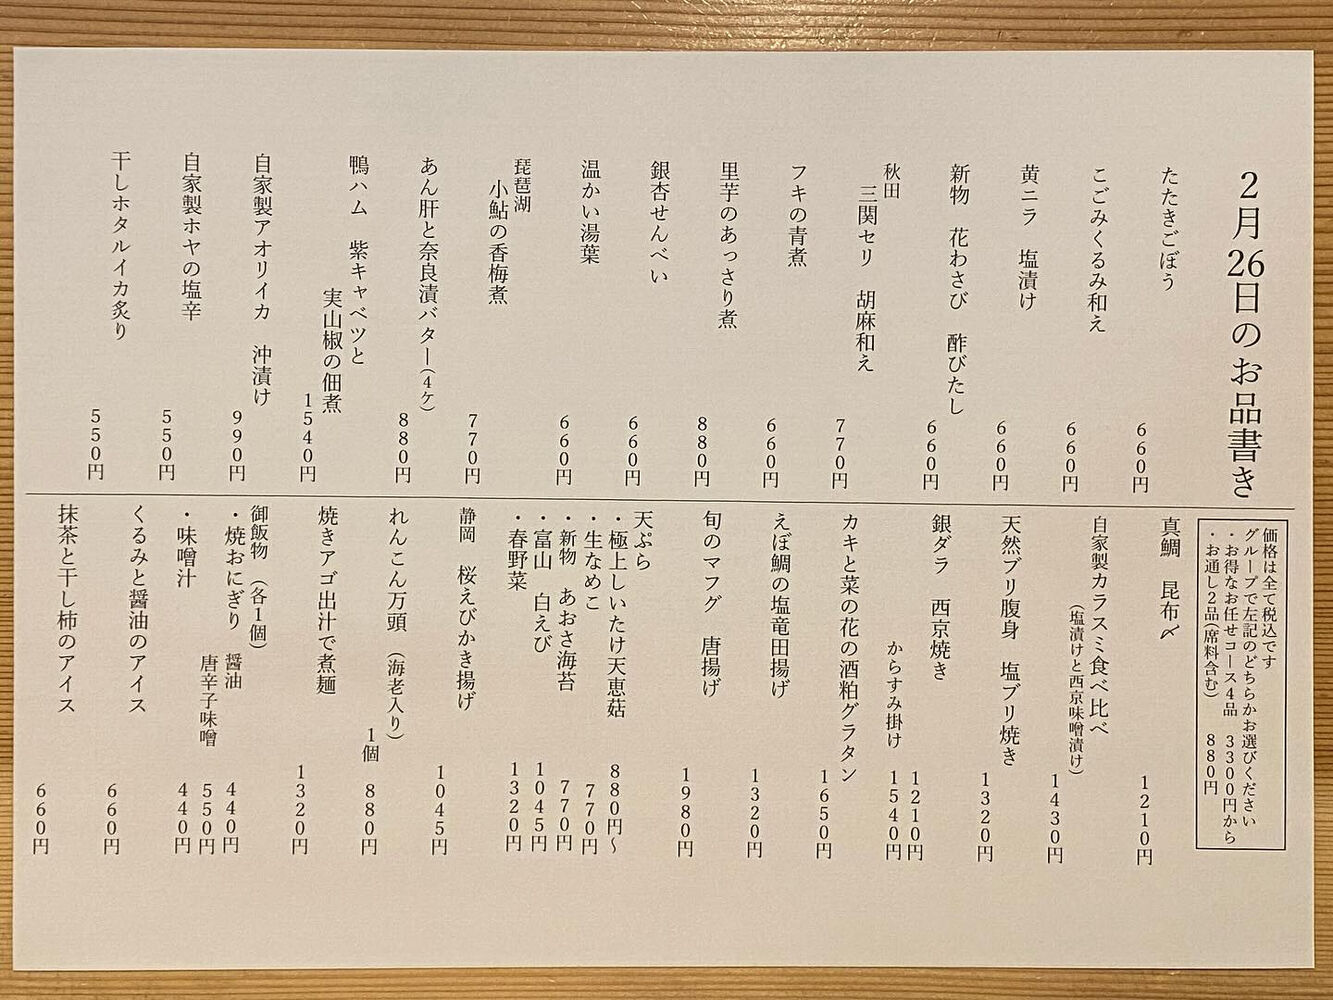 2月26日のお品書き
たたきごぼう
660円
こごみくるみ和え
660円
黄ニラ 塩漬け
660円
新物 花わさび 酢びたし
660円
秋田
三関セリ 胡麻和え
770円
フキの青煮
660円
里芋のあっさり煮
880円
銀杏せんべい
660円
温かい湯葉
660円
琵琶湖
小鮎の香梅煮
770円
あん肝と奈良漬バター(4ケ)
880円
鴨ハム 紫キャベツと
実山椒の佃煮
1540円
自家製アオリイカ 沖漬け
990円
自家製ホヤの塩辛
550円
干しホタルイカ炙り
550円
価格は全て税込です
グループで左記のどちらかお選びください
・お得なお任せコース4品 3300円から
・お通し2品(席料含む) 880円
真鯛 昆布〆
1210円
自家製カラスミ食べ比べ
(塩漬けと西京味噌漬け)
1430円
天然ブリ腹身 塩ブリ焼き
1320円
銀ダラ 西京焼き
1210円
からすみ掛け 1540円
カキと菜の花の酒粕グラタン
1650円
えぼ鯛の塩竜田揚げ
1320円
旬のマフグ 唐揚げ
1980円
天ぷら
・極上しいたけ天恵菇 880円〜
・生なめこ 770円
・新物 あおさ海苔 770円
・富山 白えび 1045円
・春野菜 1320円
静岡 桜えびかき揚げ
1045円
れんこん万頭 (海老入り)
1個 880円
焼きアゴ出汁で煮麺
1320円
御飯物 (各1個)
・焼おにぎり 醤油 440円
唐辛子味噌 550円
・味噌汁 440円
くるみと醤油のアイス
660円
抹茶と干し柿のアイス
660円